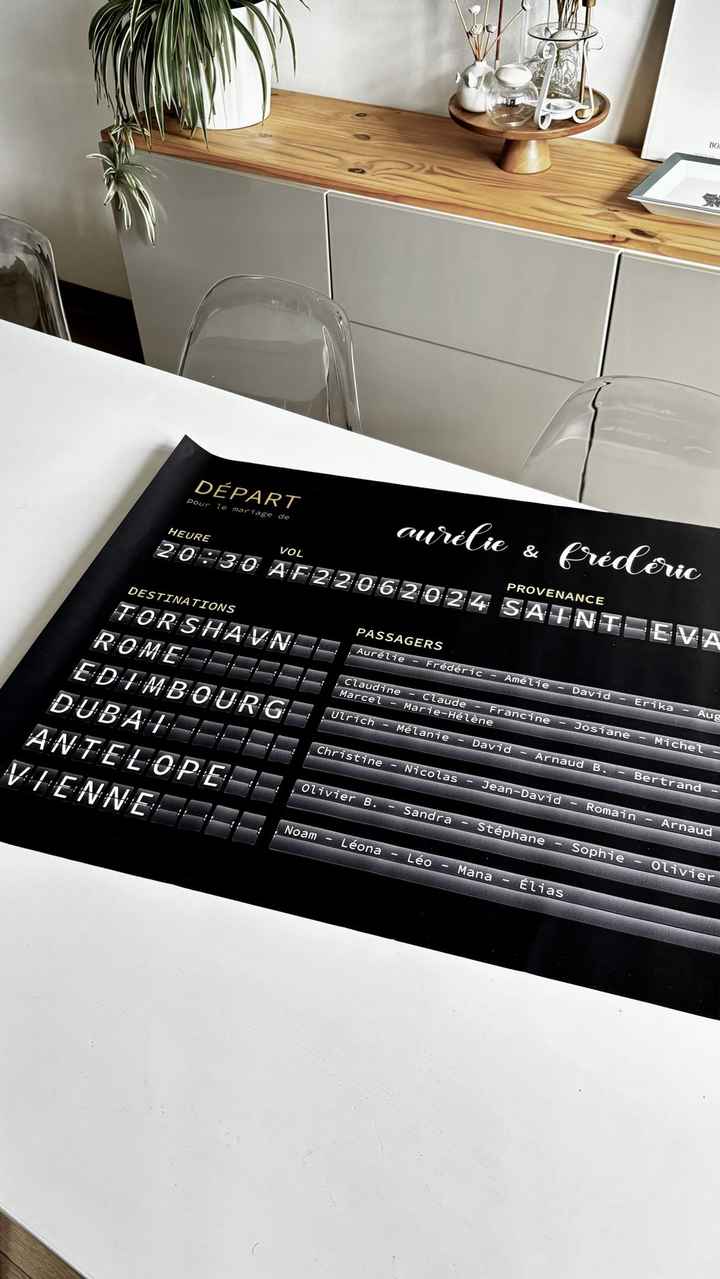 DÉPART
pour le mariage de
aurélie & frédéric
HEURE VOL PROVENANCE
20:30 AF22062024 SAINT EVA
DESTINATIONS PASSAGERS
TORSHAVN Aurélie – Frédéric – Amélie – David – Erika – Aug
ROME Claudine – Claude – Francine – Josiane – Michel –
Marcel – Marie-Hélène
EDIMBOURG Ulrich – Mélanie – David – Arnaud B. – Bertrand –
DUBAI Christine – Nicolas – Jean-David – Romain – Arnaud
ANTELOPE Olivier B. – Sandra – Stéphane – Sophie – Olivier
VIENNE Noam – Léona – Léo – Mana – Élias